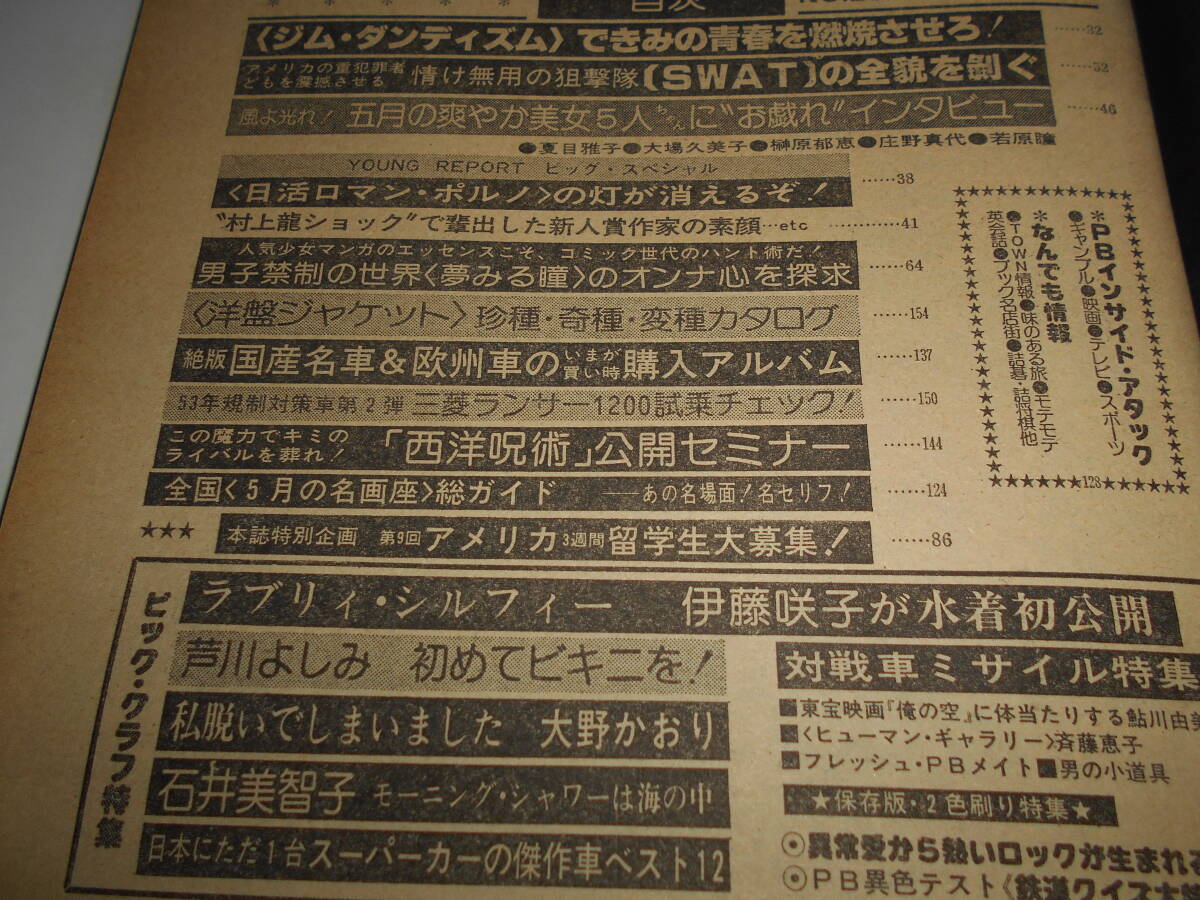 目次
〈ジム・ダンディズム〉できみの青春を燃焼させろ! ……32
アメリカの重犯罪者どもを震撼させる 情け無用の狙撃隊〔SWAT〕の全貌を剝ぐ ……52
風よ光れ! 五月の爽やか美女5人ちゃんに“お戯れ”インタビュー ……46
●夏目雅子●大場久美子●榊原郁恵●庄野真代●若原瞳
YOUNG REPORT ビッグ・スペシャル
〈日活ロマン・ポルノ〉の灯が消えるぞ! ……38
“村上龍ショック”で輩出した新人賞作家の素顔…etc ……41
人気少女マンガのエッセンスこそ、コミック世代のハント術だ!
男子禁制の世界〈夢みる瞳〉のオンナ心を探求 ……64
〈洋盤ジャケット〉珍種・奇種・変種カタログ ……154
絶版国産名車&欧州車のいまが買い時購入アルバム ……137
53年規制対策車第2弾 三菱ランサー1200試乗チェック! ……150
この魔力でキミのライバルを葬れ! 「西洋呪術」公開セミナー ……144
全国〈5月の名画座〉総ガイド ――あの名場面!名セリフ! ……124
★★★ 本誌特別企画 第9回アメリカ3週間留学生大募集! ……86
＊PBインサイド・アタック
●キャンアル●映画●テレビ●スポーツ
＊なんでも情報
●TOWN情報●味のある旅●モテモテ
英会話●ブック名店街●詰碁・詰将棋他
128
ビッグ・グラフ特集
ラブリィ・シルフィー 伊藤咲子が水着初公開
芦川よしみ 初めてビキニを!
私脱いでしまいました 大野かおり
石井美智子 モーニング・シャワーは海の中
日本にただ1台スーパーカーの傑作車ベスト12
対戦車ミサイル特集
■東宝映画『俺の空』に体当たりする鮎川由美
■〈ヒューマン・ギャラリー〉斉藤恵子
■フレッシュ・PBメイト■男の小道具
★保存版・2色刷り特集★
◉異常愛から熱いロックが生まれる
◉PB異色テスト〈鉄道クイズ大